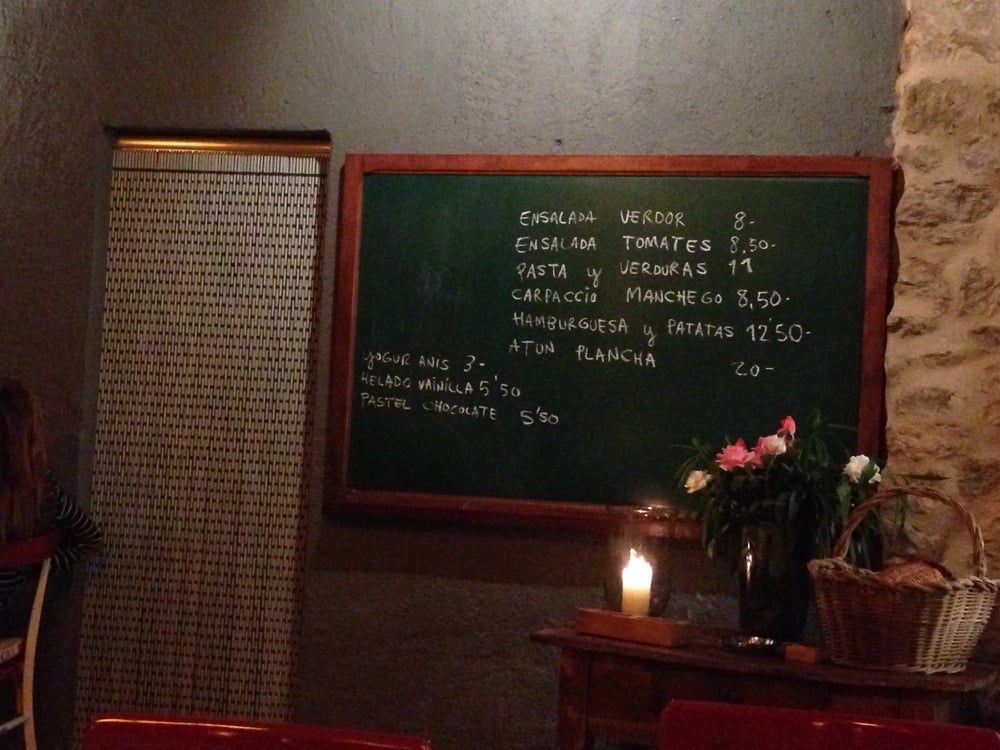 ENSALADA VERDOR 8-
ENSALADA TOMATES 8,50-
PASTA y VERDURAS 11
CARPACCIO MANCHEGO 8,50-
HAMBURGUESA y PATATAS 12'50-
ATUN PLANCHA 20-
YOGUR ANIS 3-
HELADO VAINILLA 5'50
PASTEL CHOCOLATE 5'50